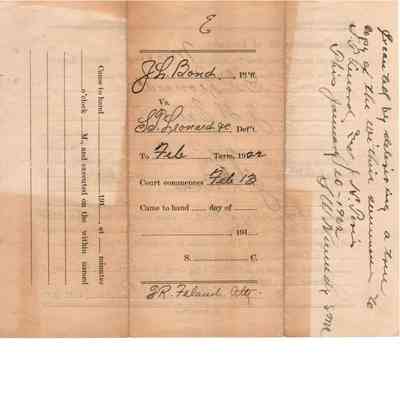 E
J. L. Bond, Pl'ff.
Vs.
Leonard &c Def't.
To Feb Term, 1922
Court commences Feb 13
Came to hand day of
191
S. C.
Atty.
Came to hand 191 at minutes
o'clock M., and executed on the within named
Executed by delivering a true
copy of the within summons to
Leonard, and J. N.
This January 10- 1922